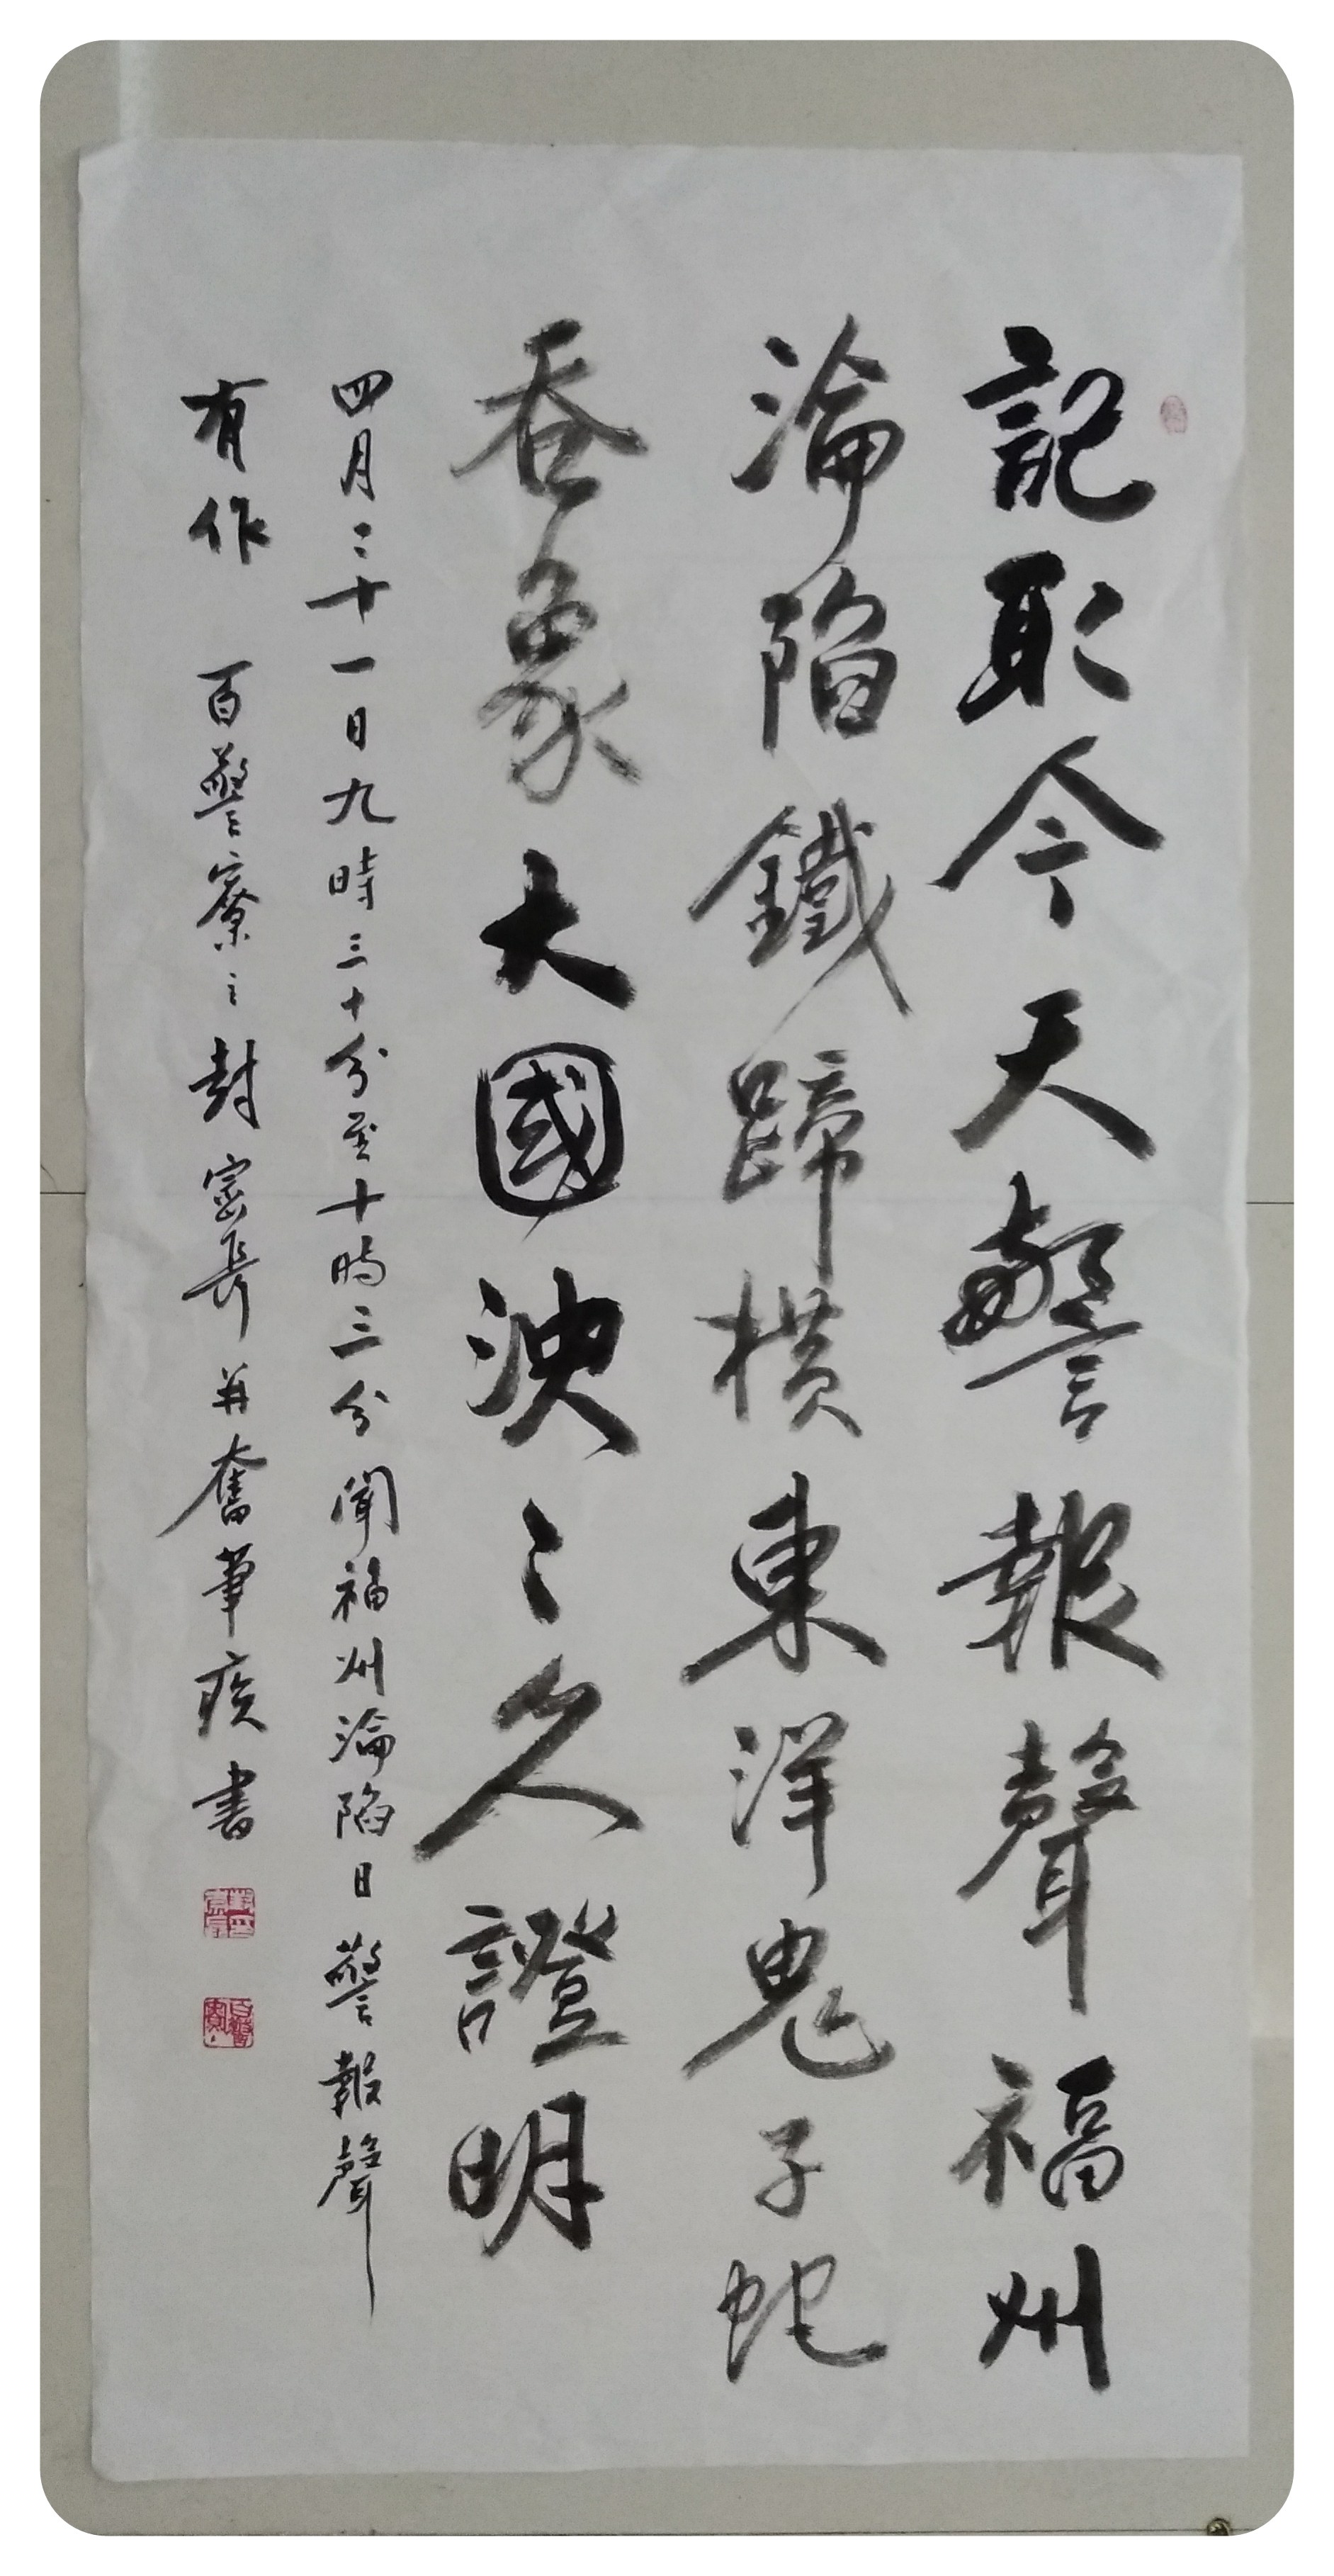 記取今天警報聲福州
淪陷鐵蹄横東洋鬼子蛇
吞象大國泱〻久證明
四月二十一日九時三十分至十時三分聞福州淪陷日警報聲
有作 百警寮之封 長并奮筆疾書